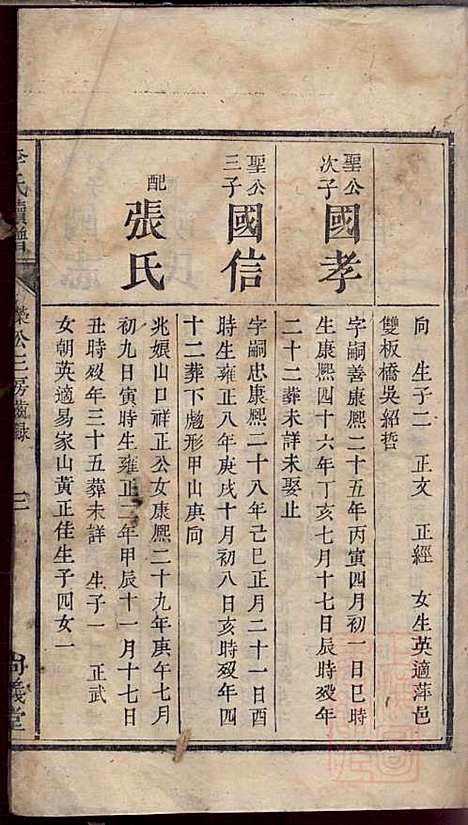 向　生子二　正文　正經　女生英適萍邑
雙板橋吳紹哲
聖公次子
國孝
字嗣善康熙二十五年丙寅四月初一日巳時
生康熙四十六年丁亥七月十七日辰時歿年
二十二葬未詳未娶止
聖公三子
國信
字嗣忠康熙二十八年己巳正月二十一日酉
時生雍正八年庚戌十月初八日亥時歿年四
十二葬下彪形甲山庚向
配
張氏
兆娘山口祥正公女康熙二十九年庚午七月
初九日寅時生雍正二年甲辰十一月十七日
丑時歿年三十五葬未詳　生子一　正武
女朝英適易家山黃正佳生子四女一
李氏續譜
榮公三房齒錄
三
尚義堂